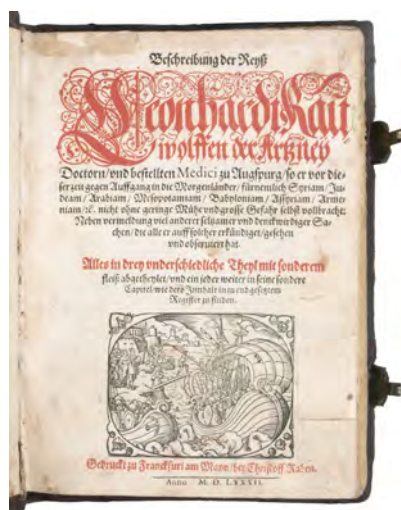 Beschreibung der Reyß
Leonhardi Rau
wolffen der Artzney
Doctorn/vnd bestellten Medici zu Augspurg/so er vor die-
ser zeit gegen Auffgang in die Morgenländer/fürnemlich Syriam/Ju-
deam/Arabiam/Mesopotamiam/Babyloniam/Assyriam/Arme-
niam/ꝛc. nicht ohne geringe Mühe vnd grosse Gefahr selbst vollbracht:
Neben vermeldung viel anderer seltzamer vnd denckwirdiger Sa-
chen/die alle er auff solcher erkündiget/gesehen
vnd obseruiert hat.
Alles in drey vnderschiedliche Theyl mit sonderem
fleiß abgetheylet/vnd ein jeder weiter in seine sondere
Capitel/wie dero Jnnhalt in zu end gesetztem
Register zu finden.
Gedruckt zu Franckfurt am Mayn/bey Christoff Raben.
Anno M. D. LXXXII.